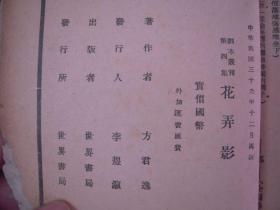 中華民國三十六年十二月再版
劇本叢刊
第四集
花弄影
實價國幣
外加運費匯費
著作者 方君逸
發行人 李煜瀛
出版者 世界書局
發行所 世界書局